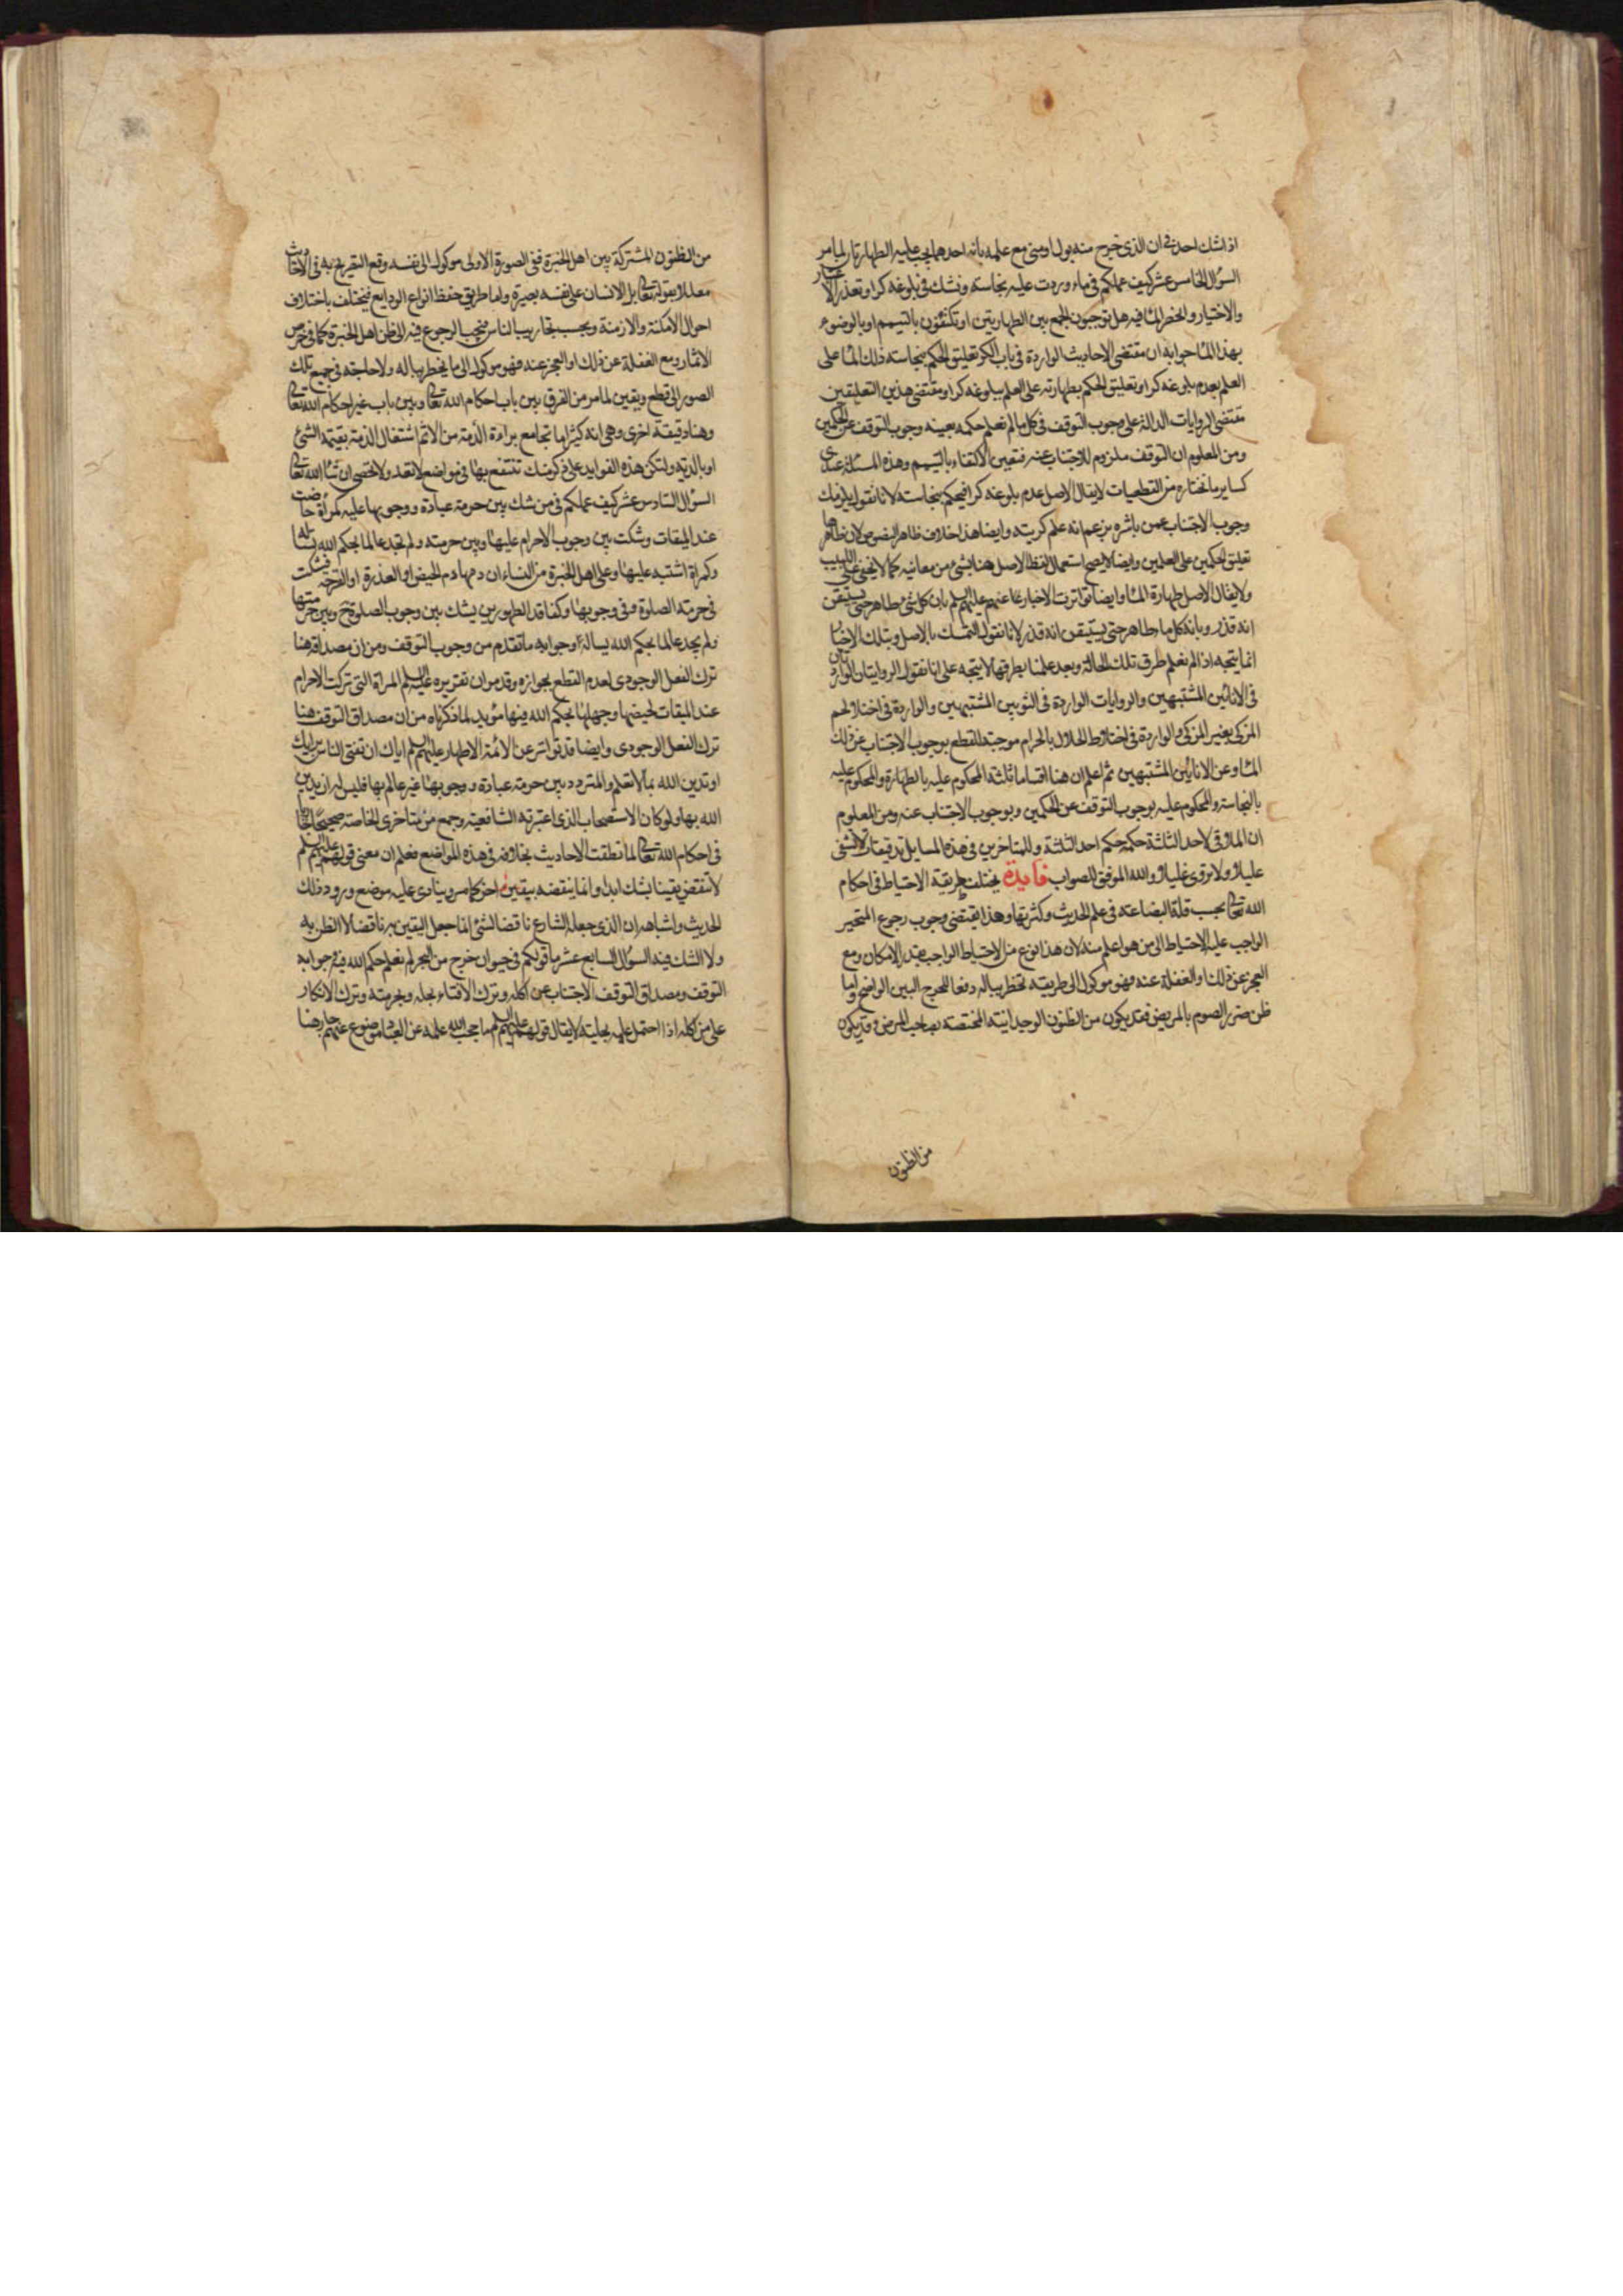 اذا شك احد في ان الذي خرج منه بول او مني مع علمه بانه احدهما يجب عليه الطهارتان لما مر
السؤال الخامس عشر كيف عملكم في ماء وردت عليه نجاسة ونشك في بلوغه كرا وتعذر الاعتبار
والاختبار وانحصر الماء فيه هل توجبون الجمع بين الطهارتين او تكتفون بالتيمم او بالوضوء
بهذا الماء جوابه ان مقتضى الاحاديث الواردة في باب الكر تعليق الحكم بنجاسة ذلك الماء على
العلم بعدم بلوغه كرا وتعليق الحكم بطهارته على العلم ببلوغه كرا ومقتضى هذين التعليقين
مقتضى الروايات الدالة على وجوب التوقف في كل ما لم نعلم حكمه بعينه وجوب التوقف عن الحكمين
ومن المعلوم ان التوقف ملزوم للاجتناب عنه فتعين الاكتفاء بالتيمم وهذه المسئلة عندي
كساير ما نختاره من القطعيات لا يقال الاصل عدم بلوغه كرا فيحكم بنجاسته لانا نقول يلزمك
وجوب الاجتناب عمن باشره بزعم انه علم كريته وايضا هذا خلاف ظاهر النصوص لان ظاهرها
تعليق الحكمين على العلمين وايضا لا يصح استعمال لفظ الاصل هنا بشيء من معانيه كما لا يخفى على اللبيب
ولا يقال الاصل طهارة الماء وايضا تواترت الاخبار عنهم عليهم السلم بان كل شيء طاهر حتى يستيقن
انه قذر وبانه كل ماء طاهر حتى يستيقن انه قذر لانا نقول التمسك بالاصل وبتلك الاخبار
انما يتجه اذا لم نعلم طرق تلك الحالة وبعد علمنا بطرقها لا يتجه على انا نقول الروايتان الواردتان
في الانائين المشتبهين والروايات الواردة في الثوبين المشتبهين والواردة في اختلاط لحم
المزكى بغير المزكى والواردة في اختلاط الحلال بالحرام موجبة للقطع بوجوب الاجتناب عن ذلك
الماء وعن الانائين المشتبهين ثم اعلم ان هنا اقساما ثلثة المحكوم عليه بالطهارة والمحكوم عليه
بالنجاسة والمحكوم عليه بوجوب التوقف عن الحكمين وبوجوب الاجتناب عنه ومن المعلوم
ان الملاقي لاحد الثلثة حكمه حكم احد الثلثة وللمتاخرين في هذه المسايل تدقيقات لا تشفى
عليلا ولا تروى غليلا والله الموفق للصواب فايدة يختلف طريقة الاحتياط في احكام
الله تعالى بحسب قلة البضاعة في علم الحديث وكثرتها وهذا يقتضى وجوب رجوع المتحير
الواجب عليه الاحتياط الى من هو اعلم منه لان هذا نوع من الاحتياط الواجب بقدر الامكان ومع
العجز عن ذلك او الغفلة عنه فهو موكول الى طريقة تخطر بباله دفعا للحرج البين الواضح واما
ظن ضرر الصوم بالمريض فقد يكون من الظنون الوجدانية المختصة بصاحب المرض وقد يكون
من الظنون
من الظنون المشتركة بين اهل الخبرة ففي الصورة الاولى موكول الى نفسه وقع التصريح به في الاحاديث
معللا بقوله تعالى بل الانسان على نفسه بصيرة واما طريق حفظ انواع الودايع فيختلف باختلاف
احوال الامكنة والازمنة وبحسب تجاريب الناس فيجب الرجوع فيه الى ظن اهل الخبرة كما في خرص
الاثمار ومع الغفلة عن ذلك او العجز عنه فهو موكول الى ما يخطر بباله ولا حاجة في جميع تلك
الصور الى قطع ويقين لما مر من الفرق بين باب احكام الله تعالى وبين باب غير احكام الله تعالى
وهنا دقيقة اخرى وهي انه كثيرا ما تجامع براءة الذمة من الاثم اشتغال الذمة بقيمة الشيء
او بالدية ولتكن هذه الفوايد على ذكر منك تنتفع بها في مواضع لا تعد ولا تحصى ان شاء الله تعالى
السؤال السادس عشر كيف عملكم في من شك بين حرمة عبادة ووجوبها عليه كمراة حاضت
عند الميقات وشكت بين وجوب الاحرام عليها وبين حرمته ولم تجد عالما بحكم الله تسأله
وكمراة اشتبه عليها وعلى اهل الخبرة من النساء ان دمها دم الحيض او العذرة او القرحة فشكت
في حرمة الصلوة وفي وجوبها وكفاقد الطهورين يشك بين وجوب الصلوة ح وبين حرمتها
ولم يجد عالما بحكم الله يسأله وجوابه ما تقدم من وجوب التوقف ومن ان مصداقه هنا
ترك الفعل الوجودي لعدم القطع بجوازه وقد مر ان تقريره عليه السلم المراة التي تركت الاحرام
عند الميقات لحيضها وجهلها بحكم الله فيها مؤيد لما ذكرناه من ان مصداق التوقف هنا
ترك الفعل الوجودي وايضا قد تواتر عن الائمة الاطهار عليهم السلم اياك ان تفتى الناس برايك
او تدين الله بما لا تعلم والمتردد بين حرمة عبادة ووجوبها غير عالم بها فليس له ان يدين
الله بها ولو كان الاستصحاب الذي اعتبرته الشافعية وجمع من متاخري الخاصة صحيحا جاريا
في احكام الله تعالى لما نطقت الاحاديث بخلافه في هذه المواضع فعلم ان معنى قولهم عليهم السلم
لا تنقض يقينا بشك ابدا وانما ينقضه بيقين اخر كما مر وينادى عليه موضع ورود ذلك
الحديث واشباهه ان الذي جعله الشارع ناقضا لشيء انما جعل اليقين به ناقضا لا الظن به
ولا الشك فيه السؤال السابع عشر ما قولكم في حيوان خرج من البحر لم نعلم حكم الله فيه جوابه
التوقف ومصداق التوقف الاجتناب عن اكله وترك الافتاء بحله وبحرمته وترك الانكار
على من اكله اذا احتمل علمه بحليته لا يقال قولهم عليهم السلم ما حجب الله علمه عن العباد موضوع عنهم جار هنا